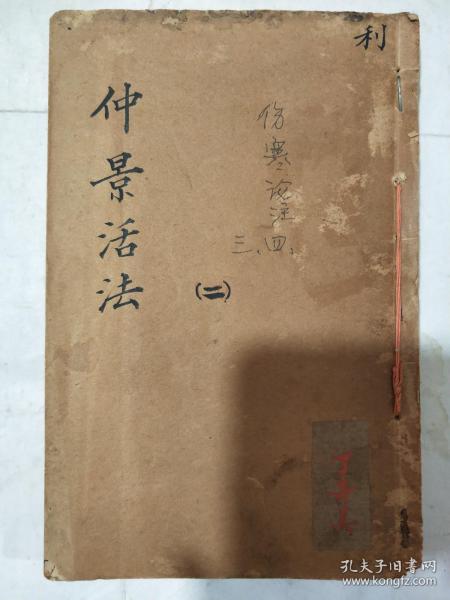 利
仲景活法
(二)
伤寒论注
三、四、
孔夫子旧书网
www.kongfz.com